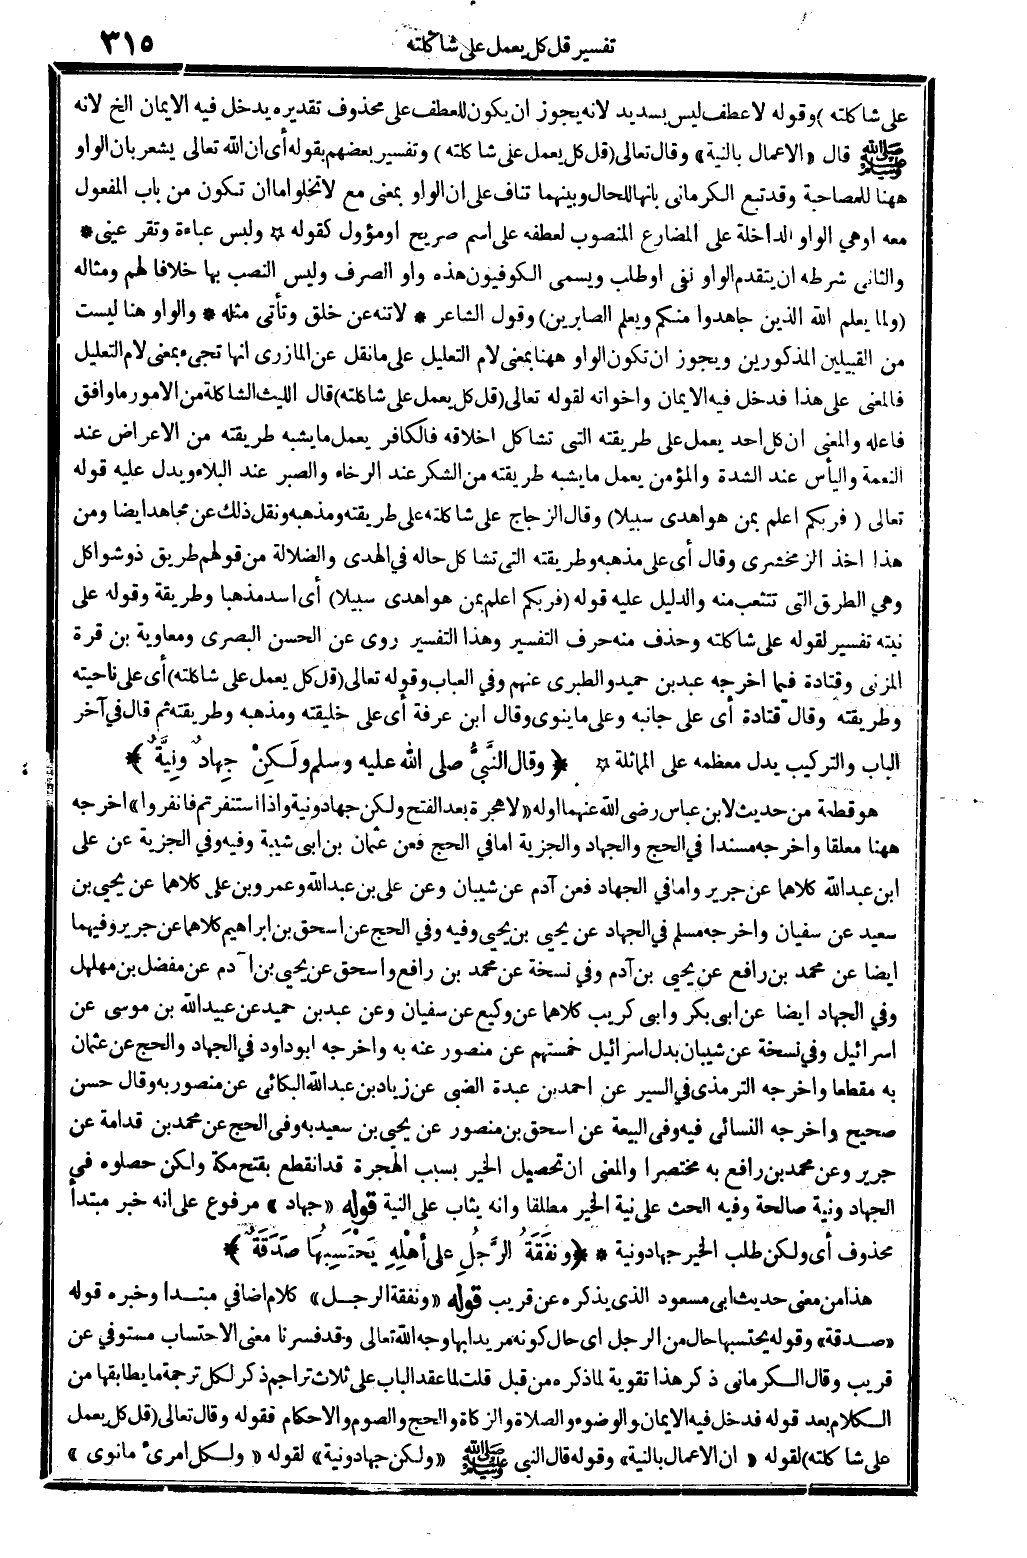 تفسير قل كل يعمل على شاكلته ٣١٥
على شاكلته ) وقوله لا عطف ليس بسديد لانه يجوز ان يكون للعطف على محذوف تقديره يدخل فيه الايمان الخ لانه
ﷺ قال «الاعمال بالنية» وقال تعالى (قل كل يعمل على شاكلته ) وتفسير بعضهم بقوله أى ان الله تعالى يشعر بان الواو
ههنا للمصاحبة وقد تبع الكرمانى بانها للحال وبينهما تناف على ان الواو بمعنى مع لا تخلو اما ان تكون من باب المفعول
معه او هي الواو الداخلة على المضارع المنصوب لعطفه على اسم صريح او مؤول كقوله ☆ ولبس عباءة وتقر عينى *
والثانى شرطه ان يتقدم الواو نفى او طلب ويسمى الكوفيون هذه واو الصرف وليس النصب بها خلافا لهم ومثاله
(ولما يعلم الله الذين جاهدوا منكم ويعلم الصابرين) وقول الشاعر * لا تنه عن خلق وتأتى مثله * والواو هنا ليست
من القبيلين المذكورين ويجوز ان تكون الواو ههنا بمعنى لام التعليل على ما نقل عن المازرى انها تجىء بمعنى لام التعليل
فالمعنى على هذا فدخل فيه الايمان واخواته لقوله تعالى (قل كل يعمل على شاكلته) قال الليث الشاكلة من الامور ما وافق
فاعله والمعنى ان كل احد يعمل على طريقته التى تشاكل اخلاقه فالكافر يعمل ما يشبه طريقته من الاعراض عند
النعمة واليأس عند الشدة والمؤمن يعمل ما يشبه طريقته من الشكر عند الرخاء والصبر عند البلاء ويدل عليه قوله
تعالى ( فربكم اعلم بمن هو اهدى سبيلا) وقال الزجاج على شاكلته على طريقته ومذهبه ونقل ذلك عن مجاهد ايضا ومن
هذا اخذ الزمخشرى وقال أى على مذهبه وطريقته التى تشاكل حاله في الهدى والضلالة من قولهم طريق ذو شواكل
وهي الطرق التى تتشعب منه والدليل عليه قوله (فربكم اعلم بمن هو اهدى سبيلا) أى اسد مذهبا وطريقة وقوله على
نيته تفسير لقوله على شاكلته وحذف منه حرف التفسير وهذا التفسير روى عن الحسن البصرى ومعاوية بن قرة
المزنى وقتادة فيما اخرجه عبد بن حميد والطبرى عنهم وفي العباب وقوله تعالى (قل كل يعمل على شاكلته) أى على ناحيته
وطريقته وقال قتادة أى على جانبه وعلى ما ينوى وقال ابن عرفة أى على خليقته ومذهبه وطريقته ثم قال في آخر
الباب والتركيب يدل معظمه على المماثلة ☆ ﴿ وقال النَّبيُّ صلى الله عليه وسلم ولَكِنْ جِهادٌ ونِيَّةٌ ﴾
هو قطعة من حديث لابن عباس رضى الله عنهما اوله «لا هجرة بعد الفتح ولكن جهاد ونية واذا استنفرتم فانفروا» اخرجه
ههنا معلقا واخرجه مسندا في الحج والجهاد والجزية اما في الحج فعن عثمان بن ابى شيبة وفيه وفي الجزية عن على
ابن عبد الله كلاهما عن جرير واما في الجهاد فعن آدم عن شيبان وعن على بن عبد الله وعمرو بن على كلاهما عن يحيى بن
سعيد عن سفيان واخرجه مسلم في الجهاد عن يحيى بن يحيى وفيه وفي الحج عن اسحق بن ابراهيم كلاهما عن جرير وفيهما
ايضا عن محمد بن رافع عن يحيى بن آدم وفي نسخة عن محمد بن رافع واسحق عن يحيى بن آدم عن مفضل بن مهلهل
وفي الجهاد ايضا عن ابى بكر وابى كريب كلاهما عن وكيع عن سفيان وعن عبد بن حميد عن عبيد الله بن موسى عن
اسرائيل وفي نسخة عن شيبان بدل اسرائيل خمستهم عن منصور عنه به واخرجه ابو داود في الجهاد والحج عن عثمان
به مقطعا واخرجه الترمذى في السير عن احمد بن عبدة الضبى عن زياد بن عبد الله البكائى عن منصور به وقال حسن
صحيح واخرجه النسائى فيه وفى البيعة عن اسحق بن منصور عن يحيى بن سعيد به وفى الحج عن محمد بن قدامة عن
جرير وعن محمد بن رافع به مختصرا والمعنى ان تحصيل الخير بسبب الهجرة قد انقطع بفتح مكة ولكن حصلوه في
الجهاد ونية صالحة وفيه الحث على نية الخير مطلقا وانه يثاب على النية قوله «جهاد » مرفوع على انه خبر مبتدأ
محذوف أى ولكن طلب الخير جهاد ونية * ﴿ ونَفَقَةُ الرَّجُلِ على أهْلِهِ يَحْتَسِبُهَا صَدَقَةٌ ﴾
هذا من معنى حديث ابى مسعود الذى يذكره عن قريب قوله «ونفقة الرجل» كلام اضافي مبتدا وخبره قوله
«صدقة» وقوله يحتسبها حال من الرجل اى حال كونه مريدا بها وجه الله تعالى وقد فسرنا معنى الاحتساب مستوفي عن
قريب وقال الكرمانى ذكر هذا تقوية لما ذكره من قبل قلت لما عقد الباب على ثلاث تراجم ذكر لكل ترجمة ما يطابقها من
الكلام بعد قوله فدخل فيه الايمان والوضوء والصلاة والزكاة والحج والصوم والاحكام فقوله وقال تعالى (قل كل يعمل
على شاكلته) لقوله « ان الاعمال بالنية» وقوله قال النبى ﷺ «ولكن جهاد ونية» لقوله « ولكل امرىء مانوى »